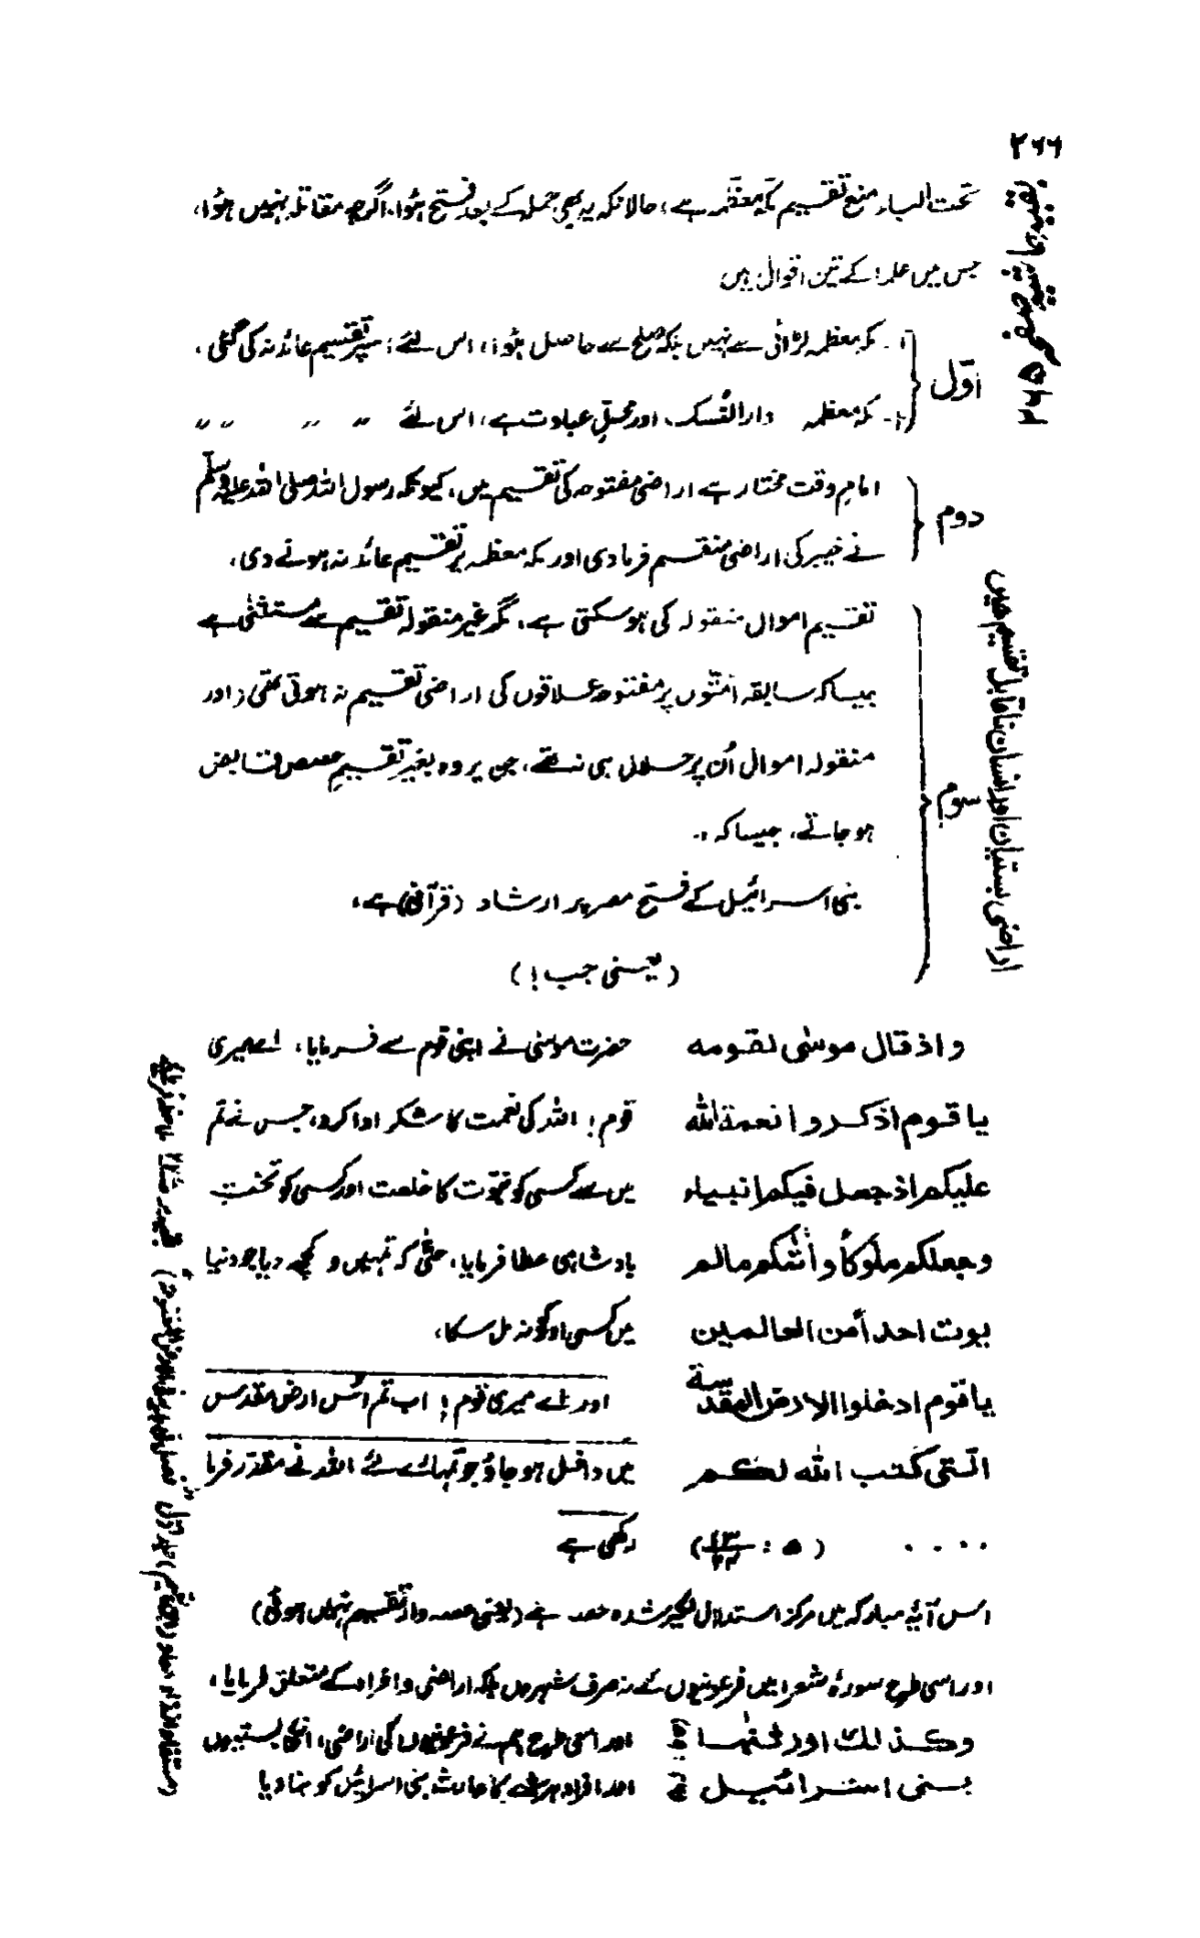 ۲۶۶
تحت الباء منع تقسیم مکہ معظمہ ہے، حالانکہ یہ بھی حملہ کے بعد فتح ہؤا، اگرچہ مقاتلہ نہیں ہؤا،
جس میں علماء کے تین اقوال ہیں
اوّل
۱۔ مکہ معظمہ لڑائی سے نہیں بلکہ صلح سے حاصل ہؤا، اس لئے تقسیم عائد نہ کی گئی،
مکہ معظمہ دار النُّسک، اور محلِ عبادت ہے، اس لئے 〃 〃 〃 〃
دوم
امامِ وقت مختار ہے اراضی مفتوحہ کی تقسیم میں، کیونکہ رسول اللہ صلی اللہ علیہ وسلم
نے خیبر کی اراضی منقسم فرما دی اور مکہ معظمہ پر تقسیم عائد نہ ہونے دی،
اراضی بستیاں اور انسان ناقابل تقسیم ہیں
سوم
تقسیم اموال منقولہ کی ہو سکتی ہے، مگر غیر منقولہ تقسیم سے مستثنٰی ہے
جیسا کہ سابقہ اُمتّوں پر مفتوحہ علاقوں کی اراضی تقسیم نہ ہوتی تھی (اور
منقولہ اموال اُن پر حلال ہی نہ تھے، جن پر وہ بغیر تقسیمِ حصص قابض
ہو جاتے، جیسا کہ :۔
بنی اسرائیل کے فتح مصر پر ارشاد (قرآنی) ہے،
(یعنی جب !)
واذ قال موسٰی لقومه حضرت موسٰی نے اپنی قوم سے فرمایا، اے میری
یا قوم اذکروا نعمة الله قوم! اللہ کی نعمت کا شکر ادا کرو، جس نے تم
علیکم اذ جعل فیکم انبیاء میں سے کسی کو نبوّت کا خلعت اور کسی کو تختِ
وجعلکم ملوکاً واٰتٰکم مالم بادشاہی عطا فرمایا، حتّٰی کہ تمہیں وہ کچھ دیا جو دنیا
یوت احداً من العالمین میں کسی اور کو نہ مل سکا،
یا قوم ادخلوا الارض المقدسة اور اے میری قوم! اب تم اُس ارضِ مقدس
التی کتب الله لکم میں داخل ہو جاؤ جو تمہارے لئے اللہ نے مقدّر فرما
۰۰۰۰ (۵ : رکھی ہے
اس آیۂ مبارکہ میں مرکز استدلال لکیر شدہ حصہ ہے (یعنی حصہ وار تقسیم نہیں ہوئی)
اور اسی طرح سورۂ شعرا میں فرعونیوں کے نہ صرف شہروں بلکہ اراضی و افراد کے متعلق فرمایا،
وکذٰلك اورثنٰها اور اسی طرح ہم نے فرعونیوں کی اراضی، انکی بستیوں
بنی اسرائیل اور افراد کا وارث بنی اسرائیل کو بنا دیا